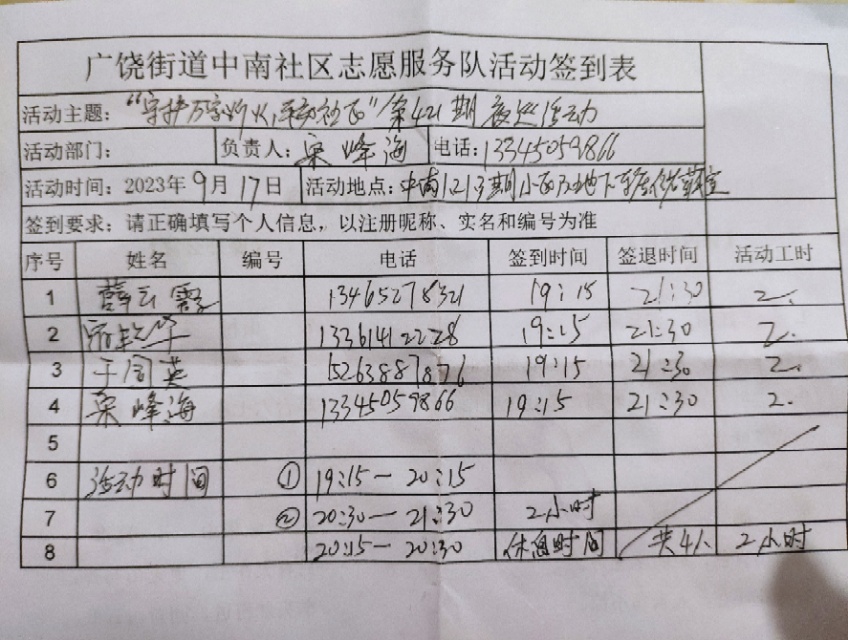 广饶街道中南社区志愿服务队活动签到表
活动主题："守护万家灯火,平安社区"第421期夜巡活动
活动部门： 负责人：宋峰海 电话：13345059866
活动时间：2023年9月17日 活动地点：中南1.2.3期小区及地下车库
签到要求：请正确填写个人信息，以注册昵称、实名和编号为准
序号 姓名 编号 电话 签到时间 签退时间 活动工时
1 薛云霞 13465278321 19:15 21:30 2.
2 13361412228 19:15 21:30 2.
3 于同英 15263887876 19:15 21:30 2.
4 宋峰海 13345059866 19:15 21:30 2.
5
6 活动时间 ① 19:15－20:15
7 ② 20:30－21:30 2小时
8 20:15－20:30 休息时间 共4人 2小时